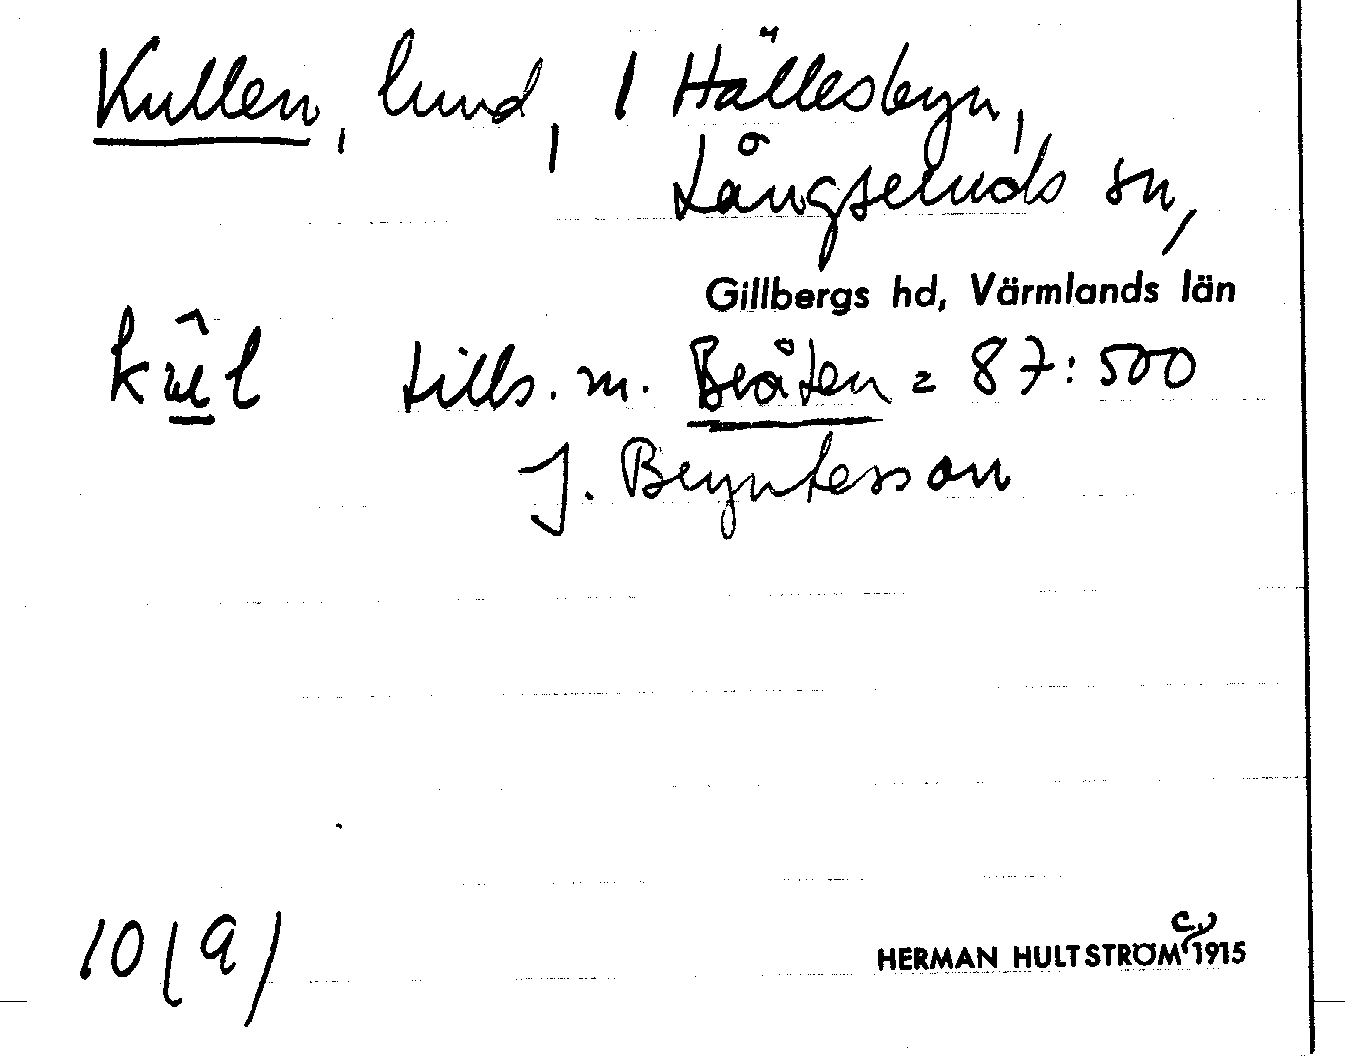 Kullen, lund, 1 Hällesbyn,
Långseruds sn,
Gillbergs hd, Värmlands län
kûl tills. m. Bråten = 87:500
J. Bryntesson
10(a)
HERMAN HULTSTRÖM 1915